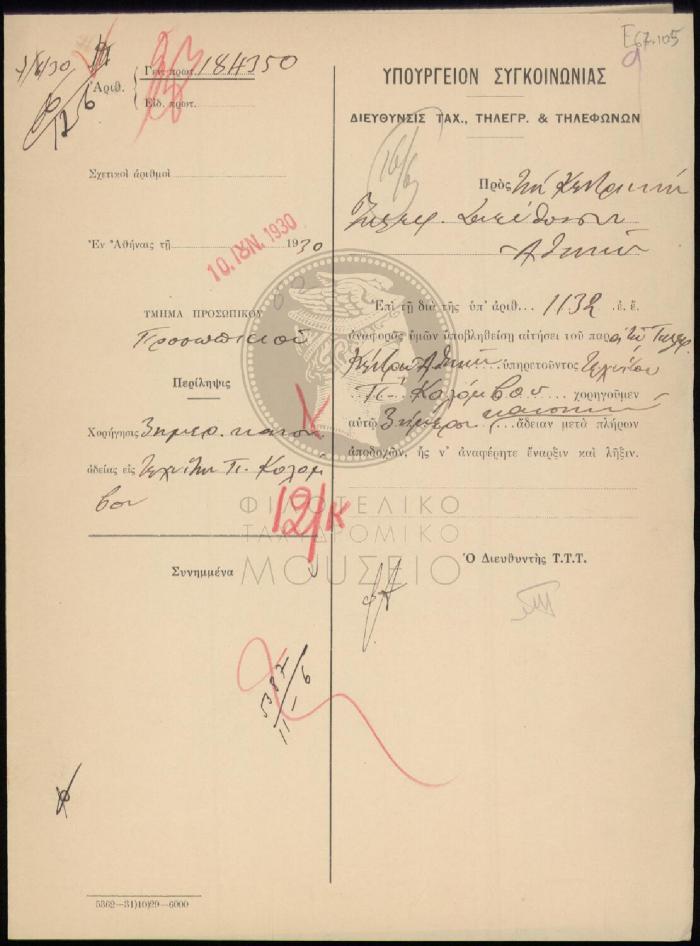 E67.105
Ἀριθ.
Γεν. πρωτ. 184350
Εἰδ. πρωτ.
Σχετικοὶ ἀριθμοὶ
Ἐν Ἀθήναις τῇ 1930
10. ΙΟΥΝ. 1930
ΤΜΗΜΑ ΠΡΟΣΩΠΙΚΟΥ
Προσωπικοῦ
Περίληψις
Χορήγησις 3ημερ. κανον.
ἀδείας εἰς τεχνίτην Π. Κολόμ
βον
12/κ
Συνημμένα
5387
11-6
5362—31)10)29—6000
ΥΠΟΥΡΓΕΙΟΝ ΣΥΓΚΟΙΝΩΝΙΑΣ
ΔΙΕΥΘΥΝΣΙΣ ΤΑΧ., ΤΗΛΕΓΡ. & ΤΗΛΕΦΩΝΩΝ
16/6
Πρὸς τὴν Κεντρικὴν
Τηλεγρ. Διεύθυνσιν
Ἀθηνῶν
Ἐπὶ τῇ διὰ τῆς ὑπ' ἀριθ. 1132 ἐ. ἔ.
ἀναφορᾶς ὑμῶν ὑποβληθείσῃ αἰτήσει τοῦ παρὰ τῷ Τηλεγρ.
Κέντρῳ Ἀθηνῶν ὑπηρετοῦντος τεχνίτου
Π. Κολόμβου χορηγοῦμεν
αὐτῷ 3ήμερον κανονικὴν ἄδειαν μετὰ πλήρων
ἀποδοχῶν, ἧς ν' ἀναφέρητε ἔναρξιν καὶ λῆξιν.
Ὁ Διευθυντὴς Τ.Τ.Τ.
ΦΙΛΟΤΕΛΙΚΟ
ΤΑΧΥΔΡΟΜΙΚΟ
ΜΟΥΣΕΙΟ